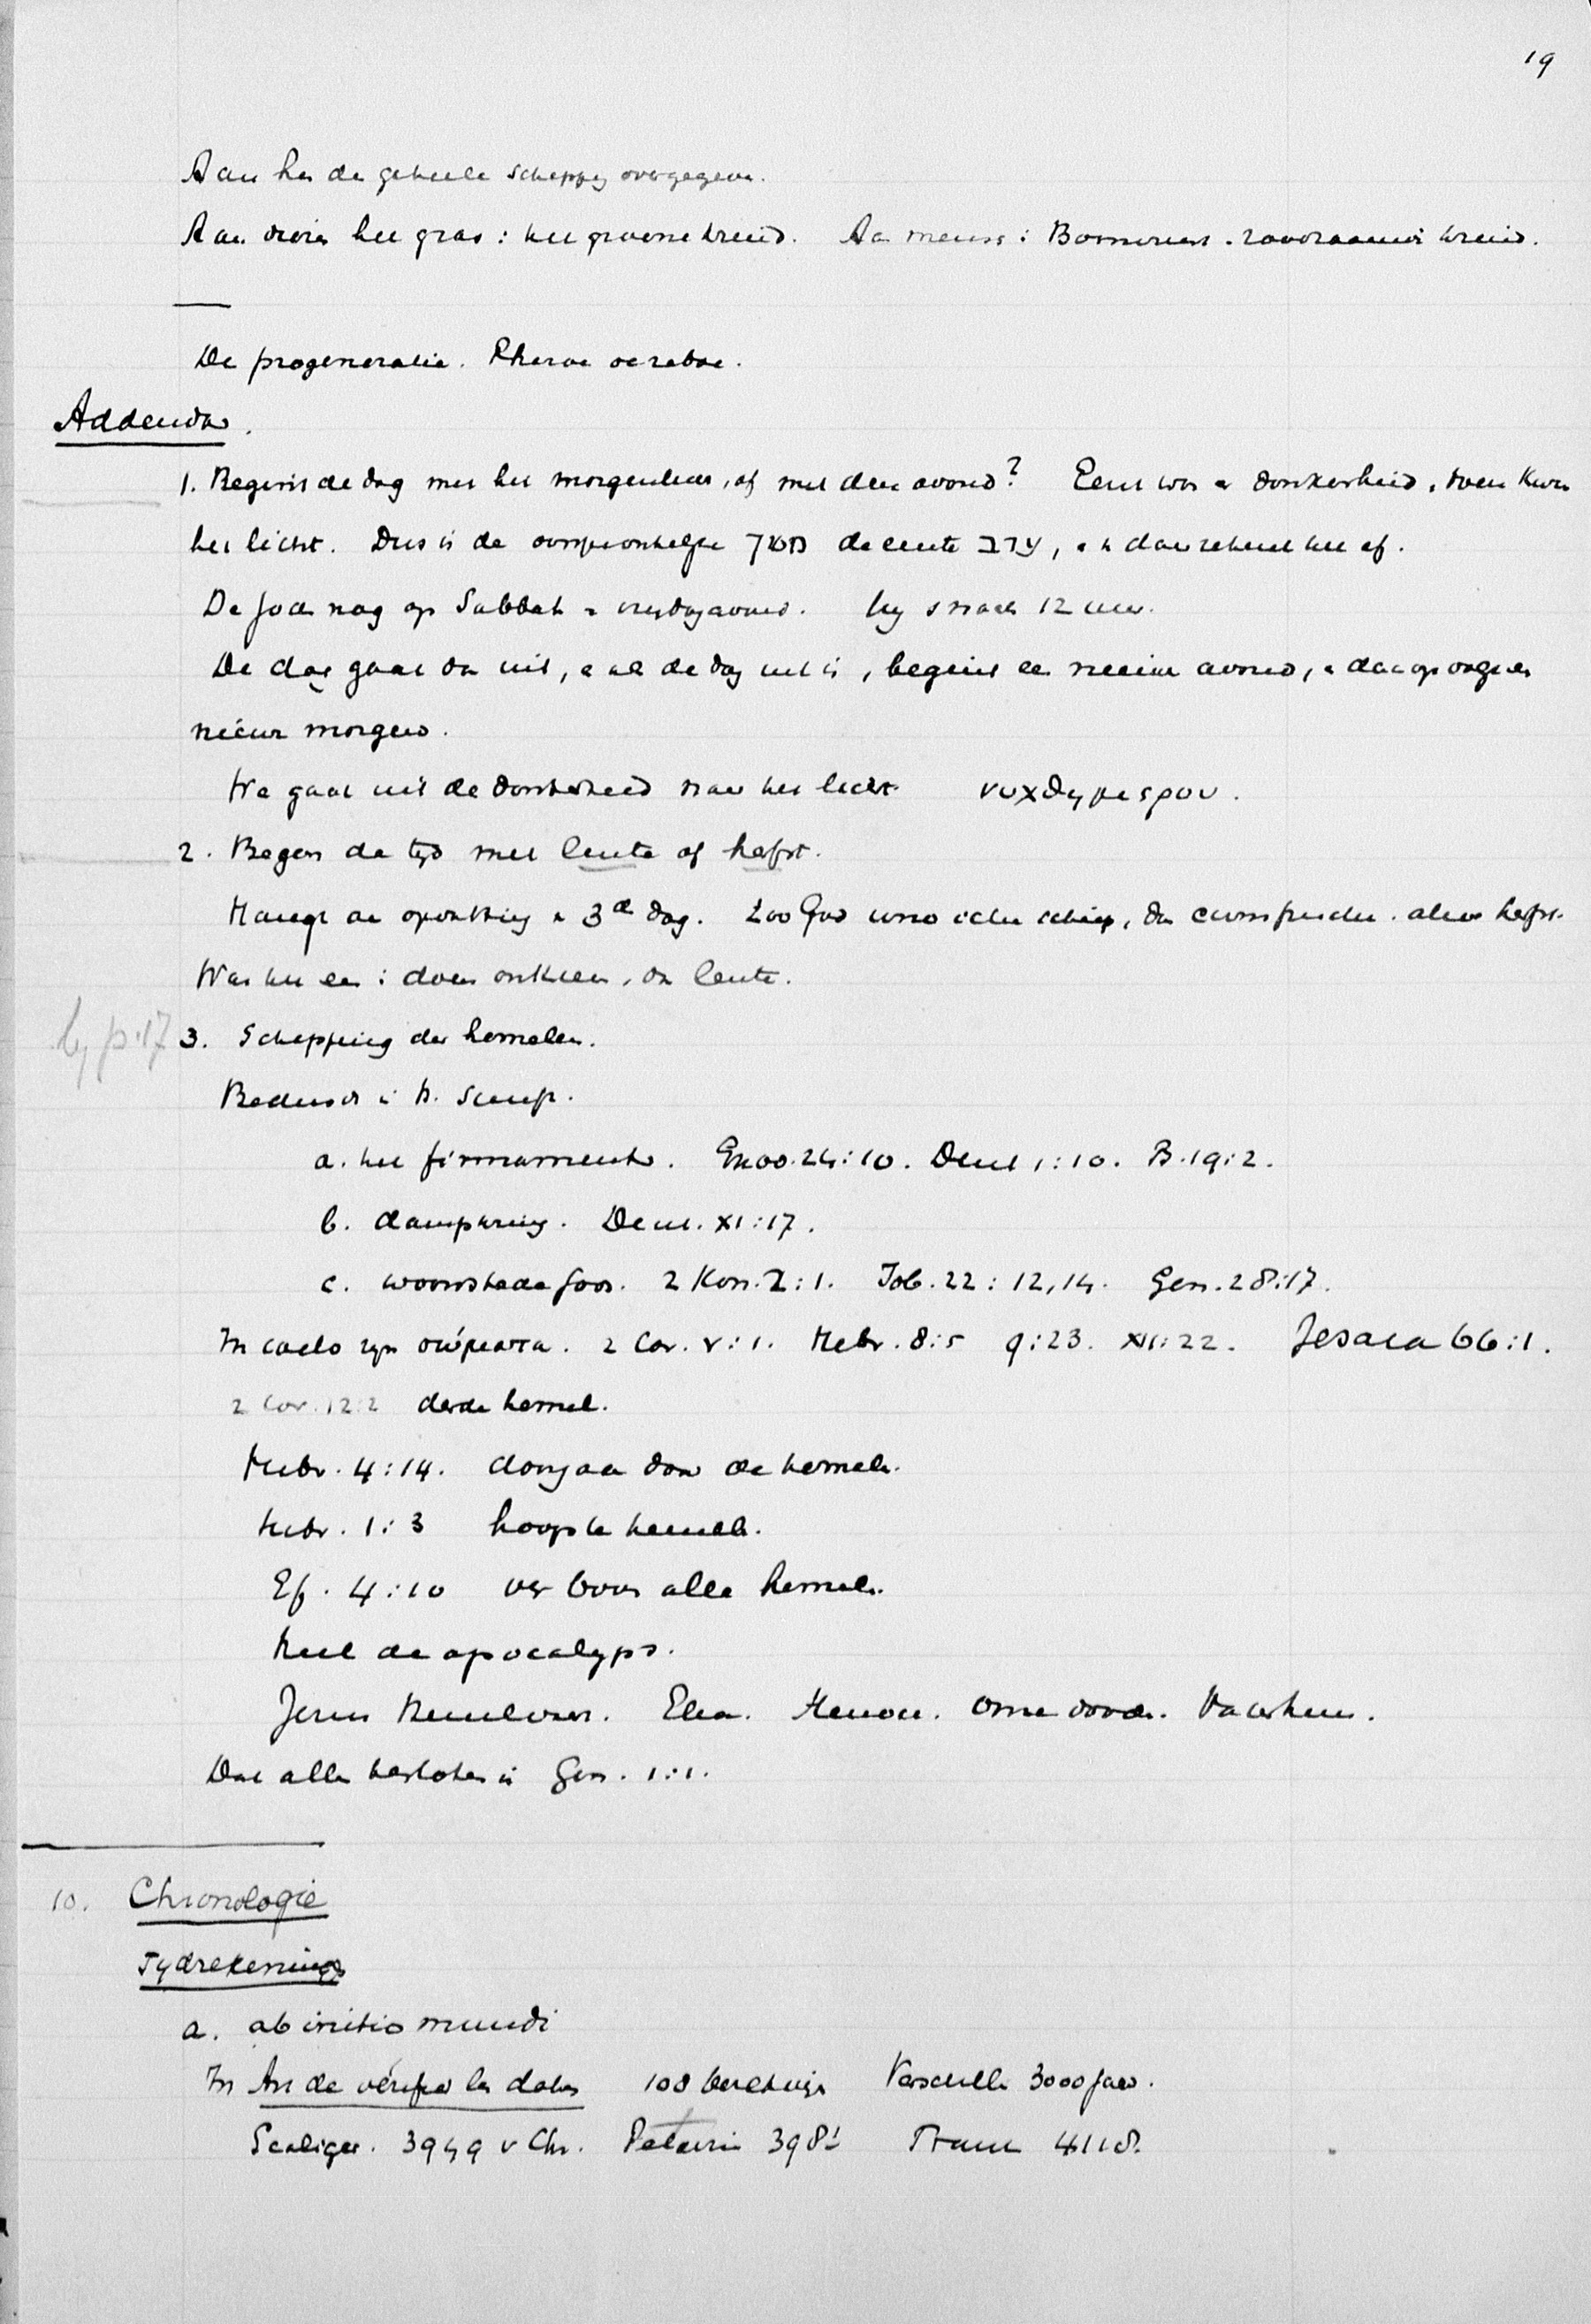 19
Aan hen de geheele schepping overgegeven.
Aan dieren het gras: het groene kruid. Aan mensch: Boomvrucht. zaadzaaiend kruid.
De progeneratie. Pherou ourebou.
Addenda.
1. Begint de dag met het morgenuur, of met den avond? Eerst was er donkerheid, toen kwam
het licht. Dus is de oorspronkelijke חשך de eerste ערב, en dan rekent het af.
De Joden nog op Sabbath en vrijdagavond. Wij snachts 12 uur.
De dag gaat dan uit, en als de dag uit is, begint een nieuwe avond, en daarop volgt een
nieuwe morgen.
We gaat uit de donkerheid naar het licht νυχθημερον.
2. Begon de tijd met lente of herfst.
Hangt aan opvatting van 3de dag. Zoo God uno ictu schiep, dan cum fructu. alzoo herfst.
Was het een: doen ontkiemen, dan lente.
by p. 17 3. Schepping der hemelen.
Beduidt in H. Script.
a. het firmament. Exod. 24:10. Deut 1:10. Ps. 19:2.
b. dampkring. Deut. XI:17.
c. woonstede Gods. 2 Kon. 2:1. Job. 22:12,14. Gen. 28:17.
In coelo zijn σώματα. 2 Cor. V:1. Hebr. 8:5 9:23. XII:22. Jesaia 66:1.
2 Cor. 12:2 derde hemel.
Hebr. 4:14. doorgaan door de hemelen.
Hebr. 1:3 hoogste hemelen.
Ef. 4:10 ver boven alle hemelen.
Heel de apocalyps.
Jezus Hemelvaart. Elia. Henoch. onze dooden. Vaderhuis.
Dat alles besloten in Gen. 1:1.
10. Chronologie
Tydrekening
a. ab initio mundi
In Art de vérifier les dates 108 berekeningen Verschillen 3000 jaar.
Scaliger. 3949 v Chr. Petavii 3984 Frank 4118.